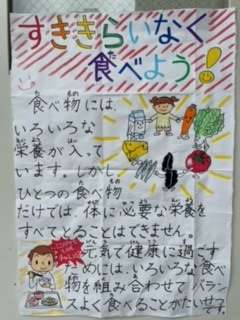 すききらいなく
食べよう!
食べ物には、
いろいろな
栄養が入って
います。しかし、
ひとつの食べ物
だけでは、体に必要な栄養を
すべてとることはできません。
元気で健康に過ごす
ためには、いろいろな食べ
物を組み合わせてバラン
スよく食べることがたいせつ
です。